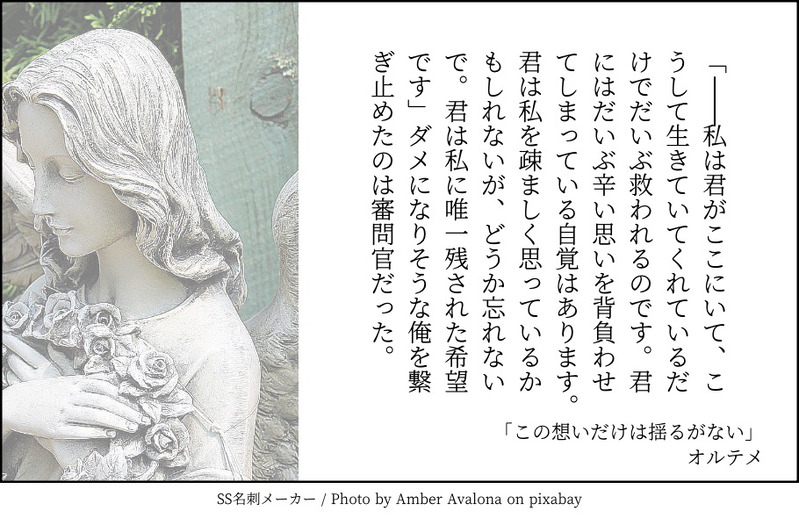 「――私は君がここにいて、こ
うして生きていてくれているだ
けでだいぶ救われるのです。君
にはだいぶ辛い思いを背負わせ
てしまっている自覚はあります。
君は私を疎ましく思っているか
もしれないが、どうか忘れない
で。君は私に唯一残された希望
です」ダメになりそうな俺を繋
ぎ止めたのは審問官だった。
「この想いだけは揺るがない」
オルテメ
SS名刺メーカー / Photo by Amber Avalona on pixabay